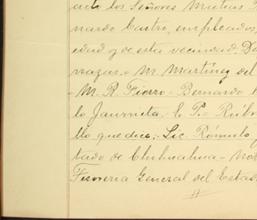 los Señores Matias
nardo Castro, empleados,
edad y de esta vecindad. D
razas - M. Martinez del
- M. R. Fierro - Bernardo
lo Jaurrieta. E. P. - Rúb
llo que dice: Lic. Rómulo
tado de Chihuahua - No
Tesoreria General del Estad